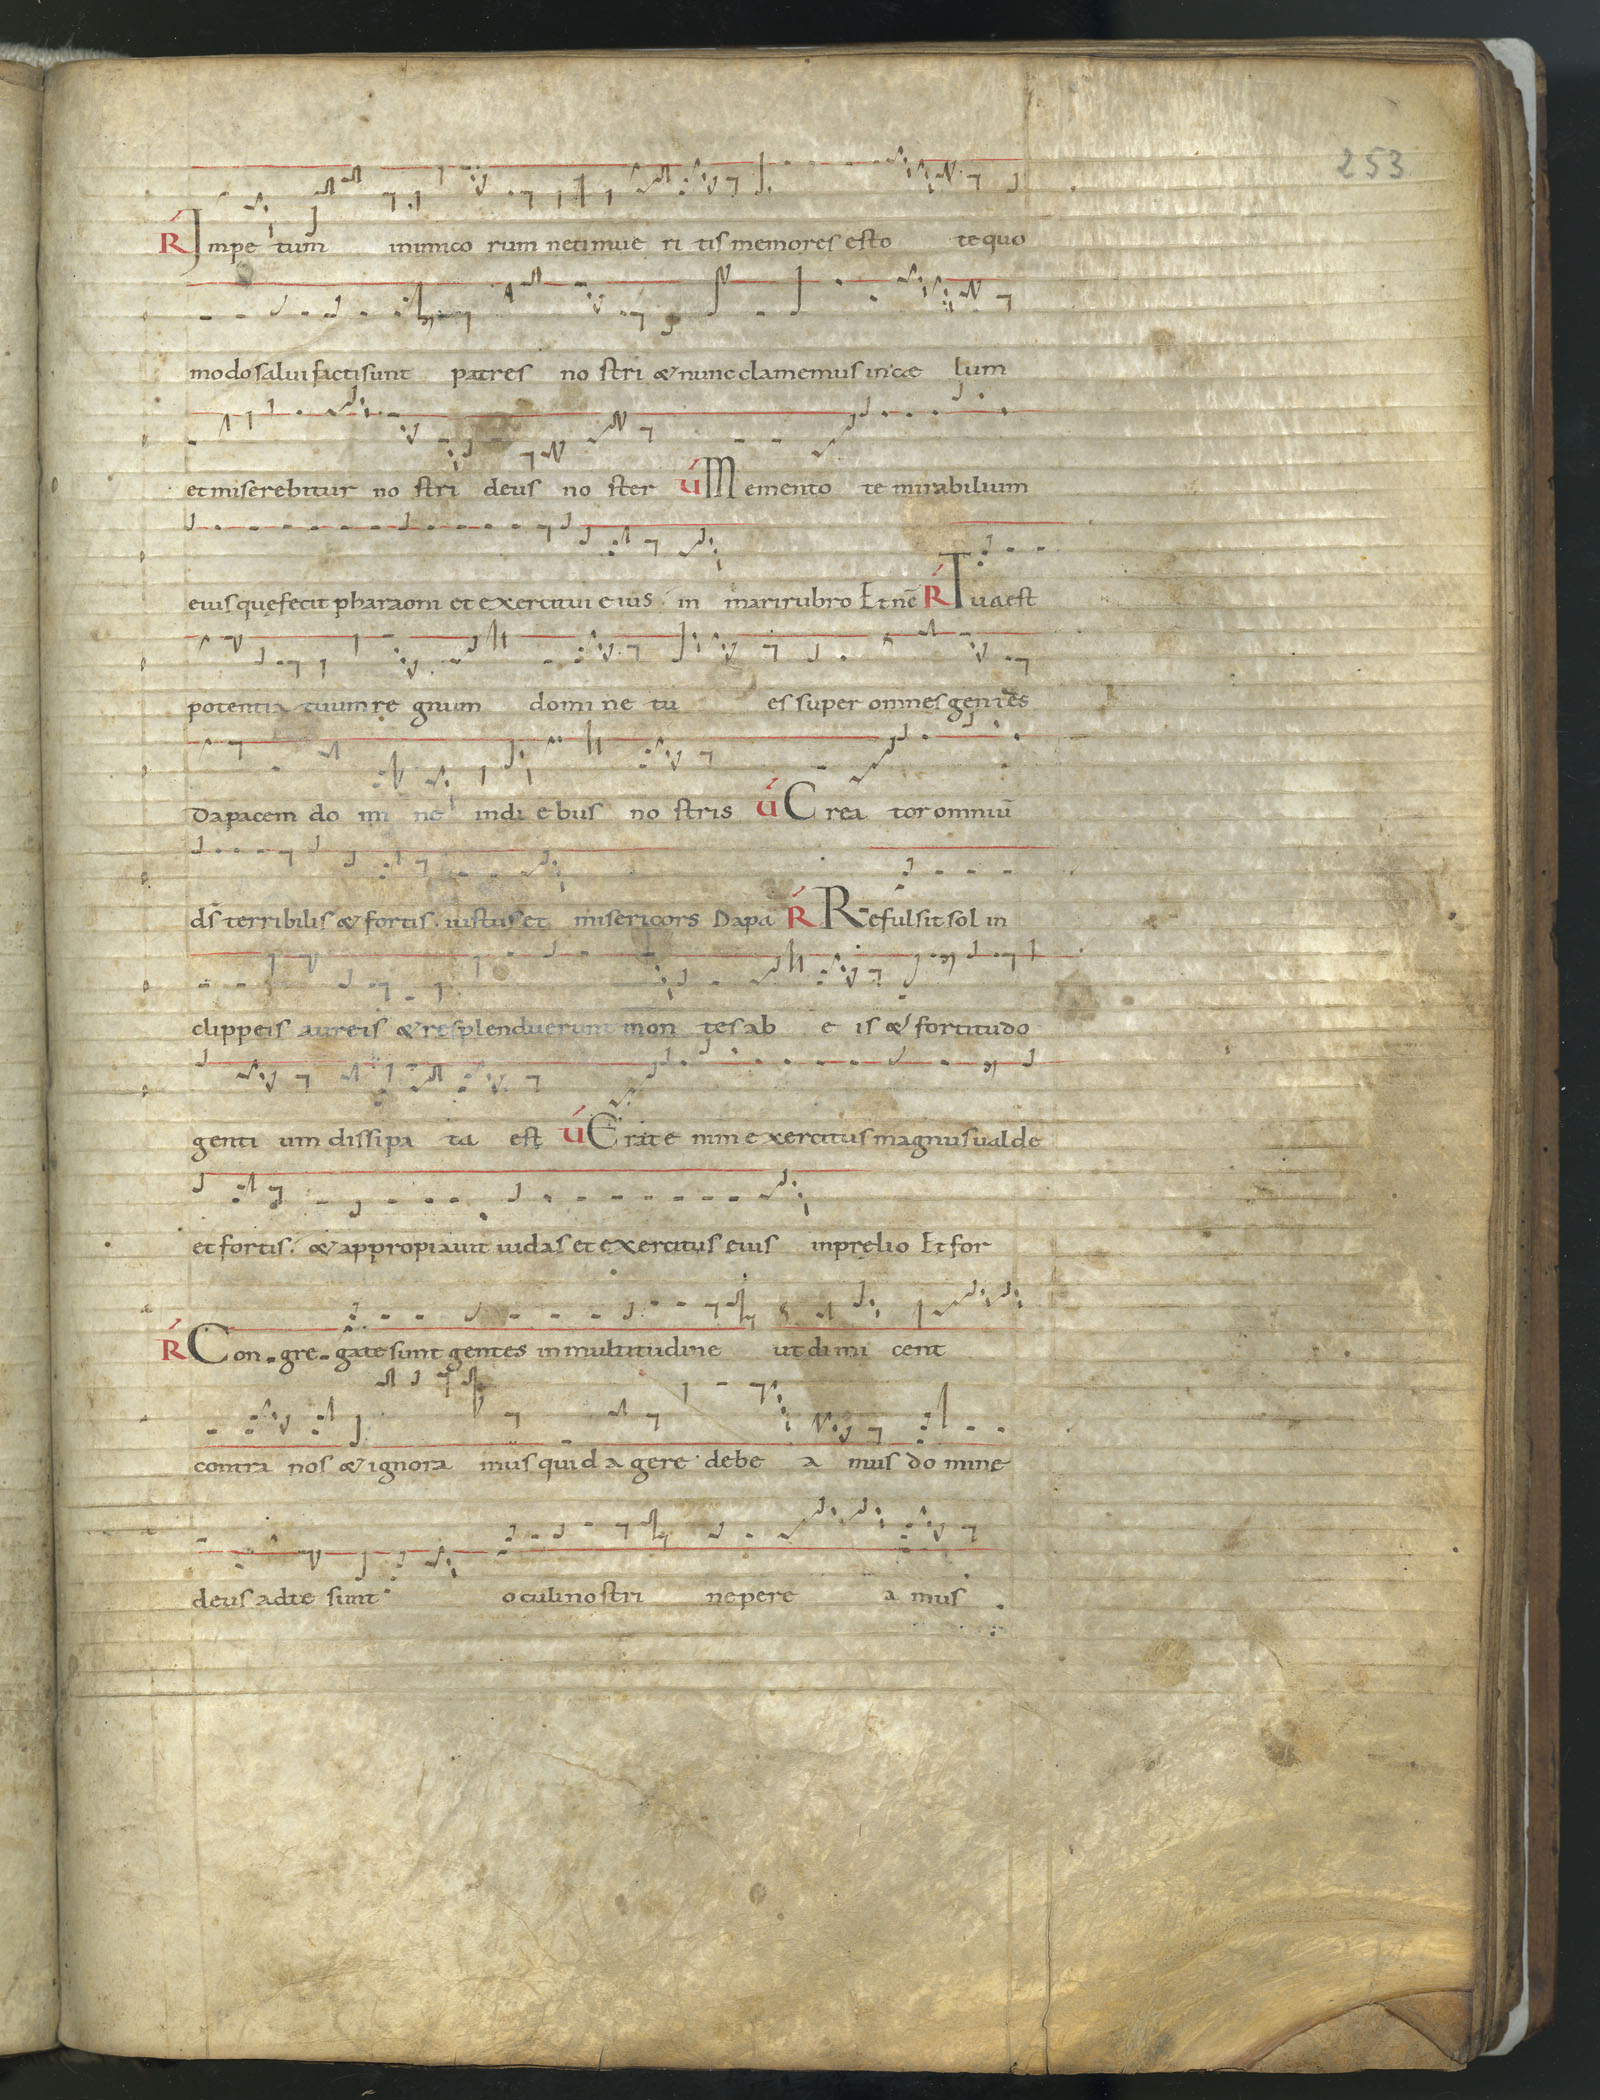 253
R Impe tum inimico rum netimue ri tis memores esto te quo
modo salui facti sunt patres no stri & nunc clamemus in cae lum
et miserebitur no stri deus no ster V Memento te mirabilium
eius quę fecit pharaoni et exercitui eius. in mari rubro Et nē R Tua est
potentia tuum re gnum domi ne tu es super omnes gentes
Da pacem do mi ne in di e bus no stris V Crea tor omniū
ds̄ terribilis & fortis. iustus et misericors Da pa R Refulsit sol in
clippeis aureis & resplenduerunt mon tes ab e is & fortitudo
genti um dissipa ta est V Erat e nim exercitus magnus ualde
et fortis. & appropiauit iudas et exercitus eius in pręlio Et for
R Con-gre-gate sunt gentes in multitudine ut di mi cent
contra nos & ignora mus quid a gere debe a mus do mine
deus ad te sunt oculi nostri ne pere a mus.